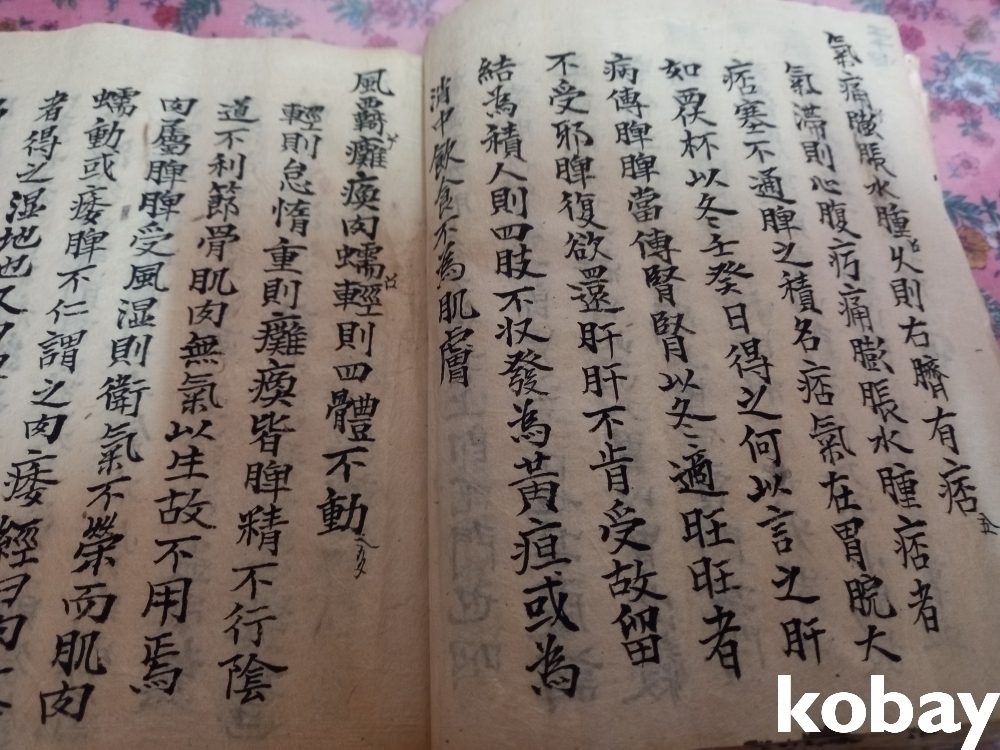 氣痛膨脹水腫火則右臍有痞
氣滯則心腹疞痛膨脹水腫痞者
痞塞不通脾之積名痞氣在胃脘大
如覆杯以冬壬癸日得之何以言之肝
病傳脾脾當傳腎腎以冬適旺旺者
不受邪脾復欲還肝肝不肯受故留
結為積人則四肢不収發為黄疸或為
消中飲食不為肌膚
風羈癱瘓肉蠕輕則四體不動
輕則怠惰重則癱瘓皆脾精不行陰
道不利節骨肌肉無氣以生故不用焉
肉屬脾脾受風湿則衛氣不榮而肌肉
蠕動或痿脾不仁謂之肉痿經曰肉
者得之湿地也又曰
kobay